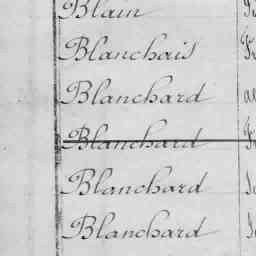 Blain
Blanchais
Blanchard
Blanchard
Blanchard
Blanchard